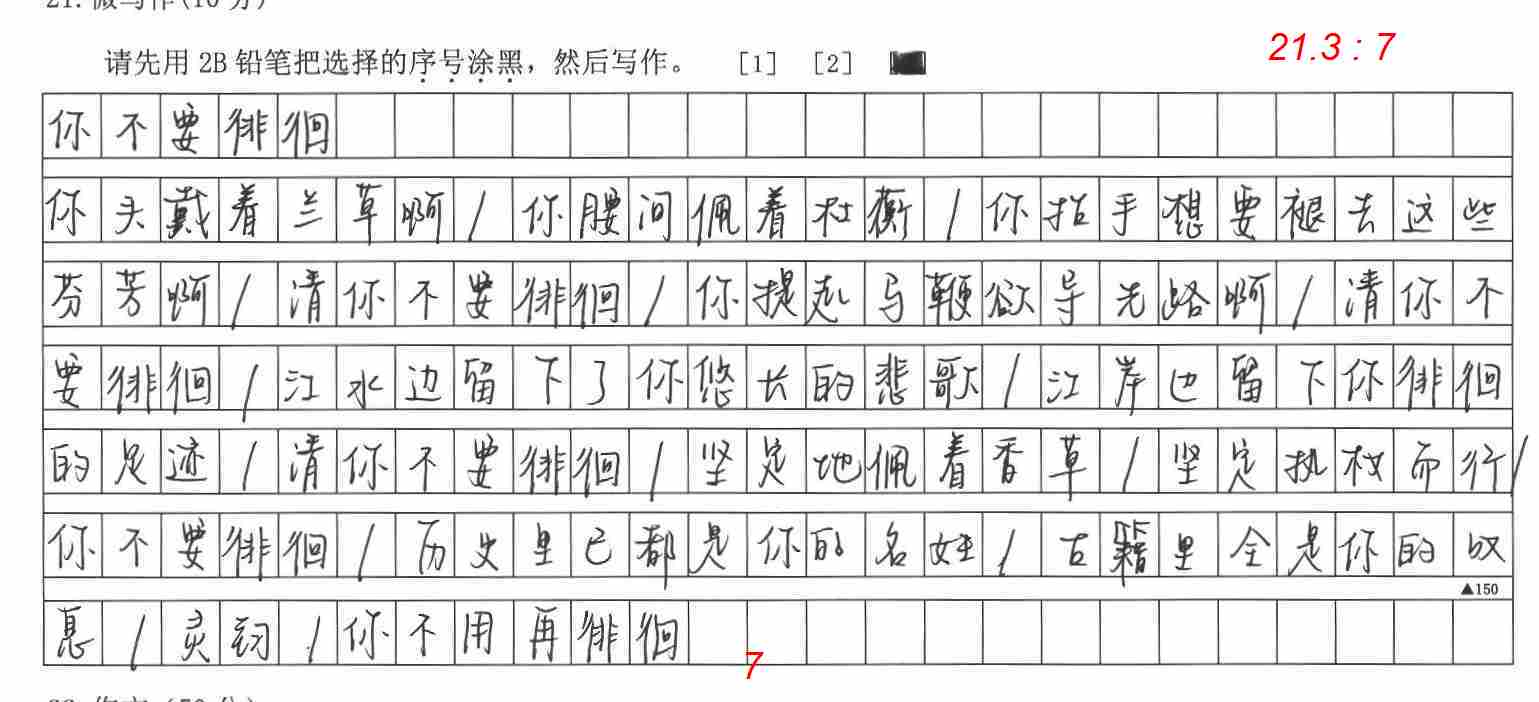 请先用 2B 铅笔把选择的序号涂黑，然后写作。 [1] [2]
21.3 : 7
你不要徘徊
你头戴着兰草啊/你腰间佩着杜蘅/你抬手想要褪去这些
芬芳啊/请你不要徘徊/你提起马鞭欲导先路啊/请你不
要徘徊/江水边留下了你悠长的悲歌/江岸边留下你徘徊
的足迹/请你不要徘徊/坚定地佩着香草/坚定执杖而行/
你不要徘徊/历史里已都是你的名姓/古籍里全是你的叹
▲150
息/灵均/你不用再徘徊
7